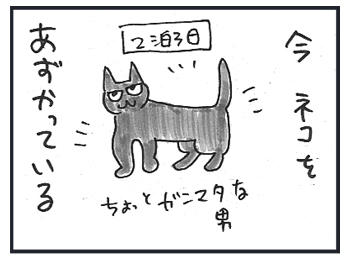 今 ネコを
あずかっている
2泊3日
ちょっとガニマタな
男